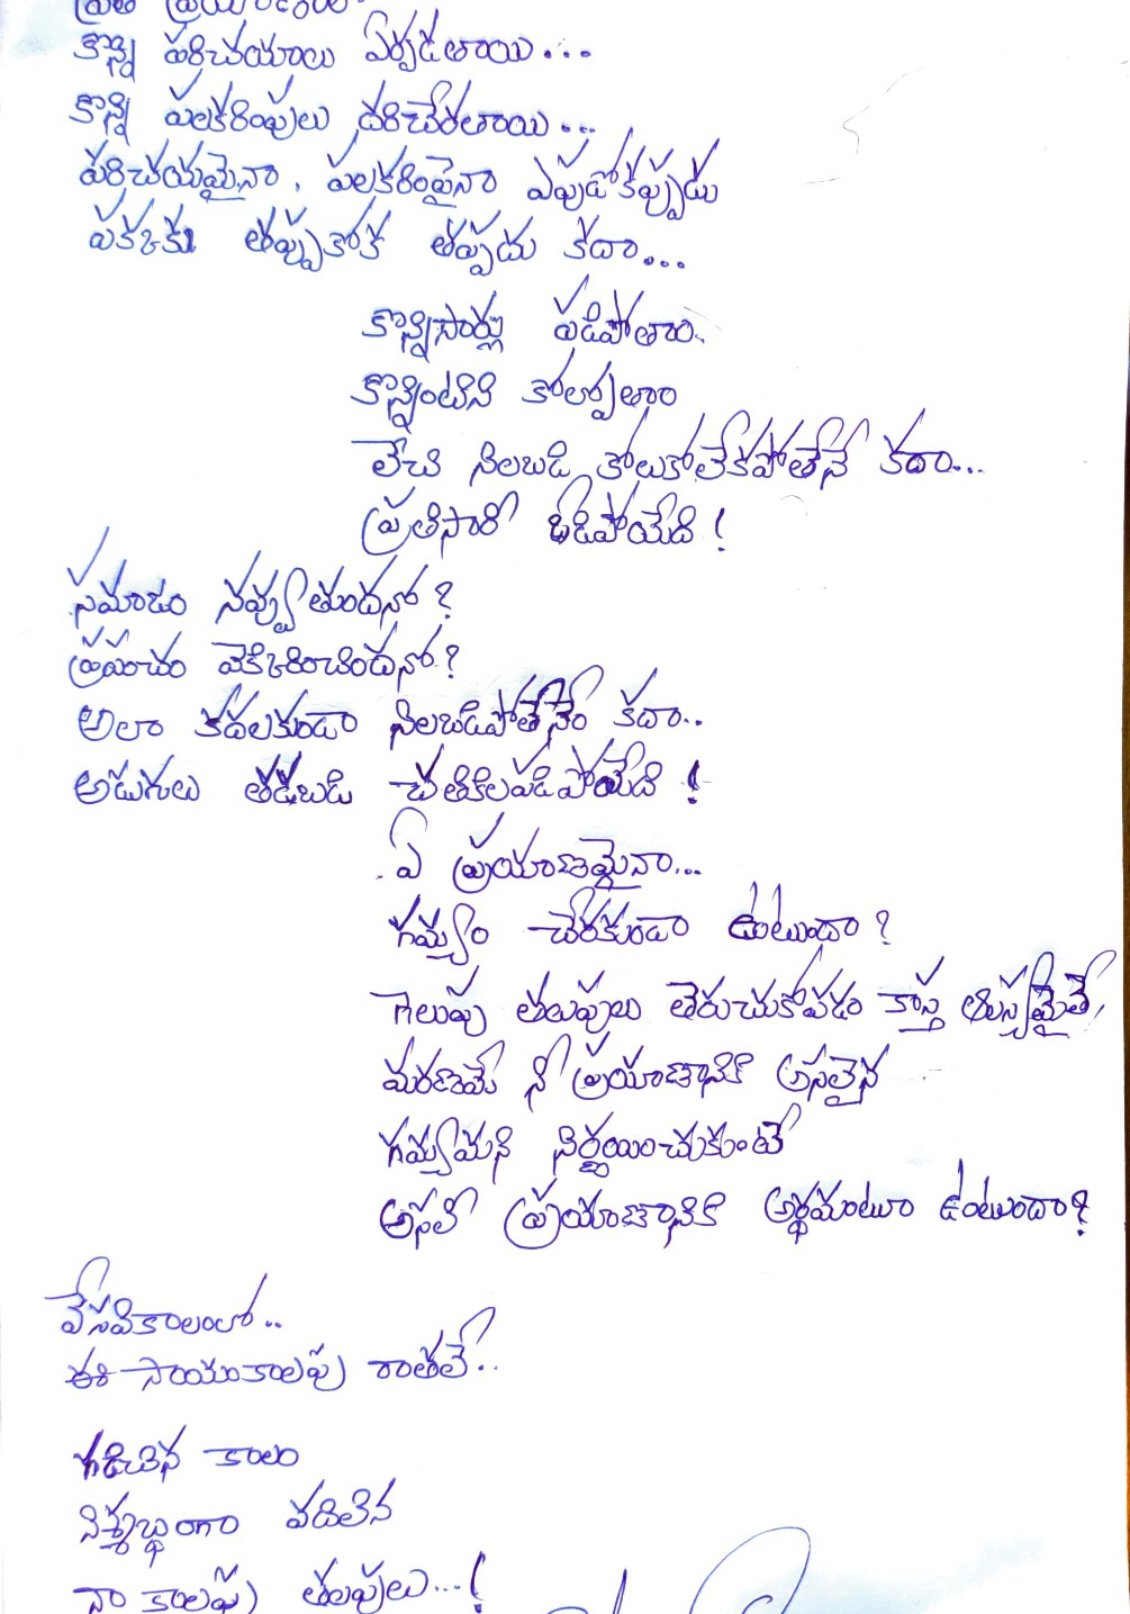 ప్రతి ప్రయాణంలో
కొన్ని పరిచయాలు ఏర్పడతాయి...
కొన్ని పలకరింపులు దరిచేరతాయి...
పరిచయమైనా, పలకరింపైనా ఎపుడోకప్పుడు
పక్కకు తప్పుకోక తప్పదు కదా...
కొన్నిసార్లు పడిపోతాం.
కొన్నింటిని కోల్పోతాం
లేచి నిలబడి కోలుకోలేకపోతేనే కదా...
ప్రతిసారీ ఓడిపోయేది!
సమాజం నవ్వుతుందనో?
ప్రపంచం వెక్కిరించిందనో?
అలా కదలకుండా నిలబడిపోతేనేం కదా..
అడుగులు తడబడి చతికిలపడిపోయేది!
ఏ ప్రయాణమైనా...
గమ్యం చేరకుండా ఉంటుందా?
గెలుపు తలుపులు తెరుచుకోవడం కాస్త ఆలస్యమైతే,
మరణమే నీ ప్రయాణానికి అసలైన
గమ్యమని నిర్ణయించుకుంటే
అసలీ ప్రయాణానికి అర్థమంటూ ఉంటుందా?
వేసవికాలంలో..
ఈ సాయంకాలపు రాతలే..
గడిచిన కాలం
నిశ్శబ్ధంగా వదిలిన
నా కాలపు తలపులు...!